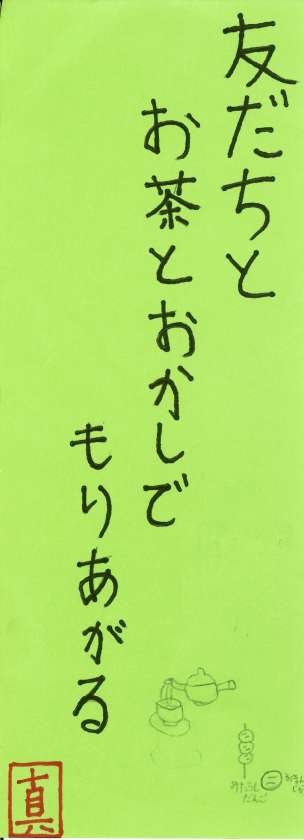 友だちと
お茶とおかしで
もりあがる
真
みたらし
だんご